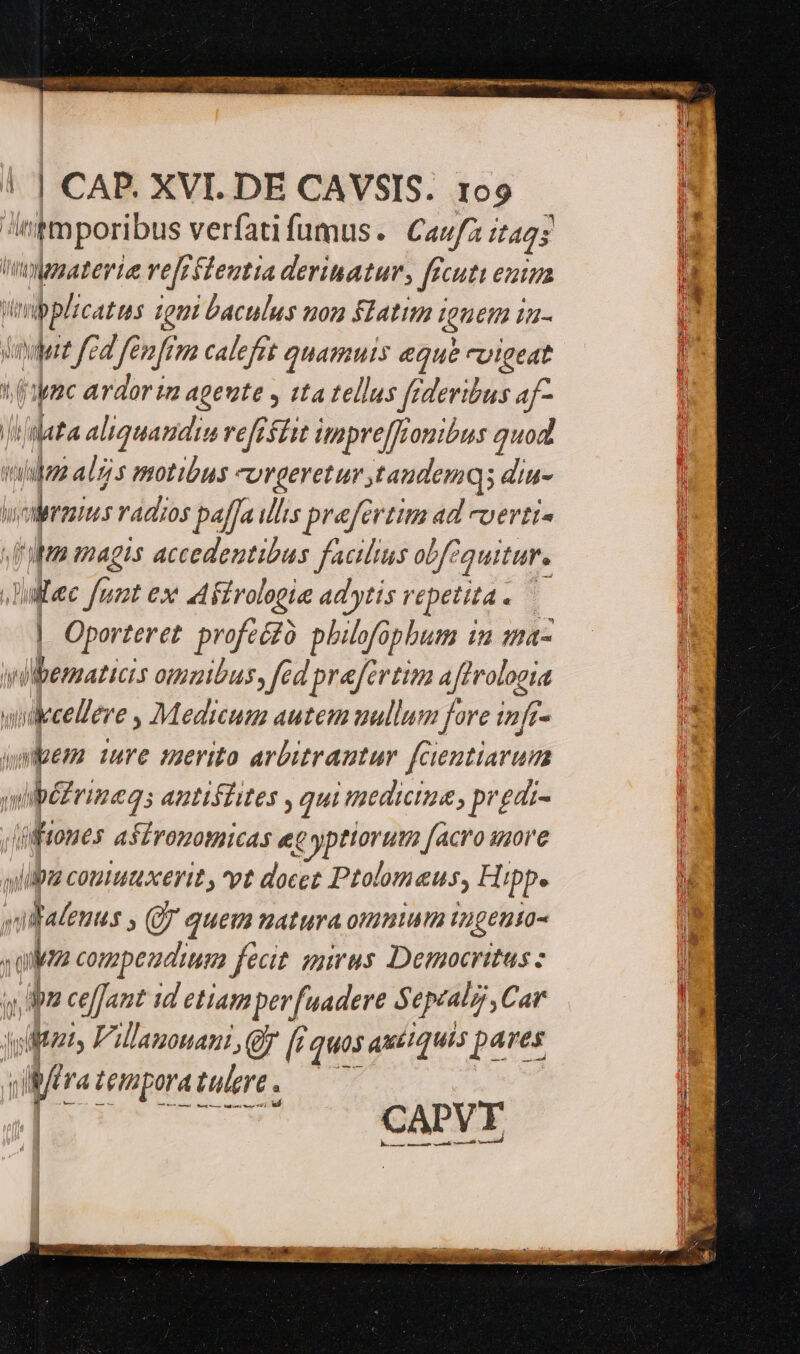 CAP. XVI. DE CAVSIS. 109
mporibus verſati ſumus. Cauſa itaq;
materiæ reſiſtentia deriuatur, ſicuti enim
plicatus igni baculus non ſtatim ignem in-
it ſed ſenſim calefit quamuis æquè vigeat
nc ardor in agente, ita tellus ſideribus aſ-
ata aliquandiu reſiſtit impreſſionibus quod
m alijs motibus vrgeretur, tandemq; diu-
rnius radios paſſa illis præſertim ad verti-
m magis accedentibus facilius obſequitur.
ec ſunt ex Aſtrologiæ adytis repetita.
Oporteret profectò philoſophum in ma-
hematicis omnibus, ſed præſertim aſtrologia
cellere, Medicum autem nullum fore inſi-
nem iure merito arbitrantur ſcientiarum
ctrinæq; antiſtites, qui medicinæ, prędi-
tiones aſtronomicas ægyptiorum ſacro more
n coniunxerit, vt docet Ptolomæus, Hipp.
alenus, & quem natura omnium ingenio-
m compendium fecit mirus Democritus:
n ceſſant id etiam perſuadere Septalij, Car
ni, Villanouani, & ſi quos antiquis pares
ſtra tempora tulere.
CAPVT